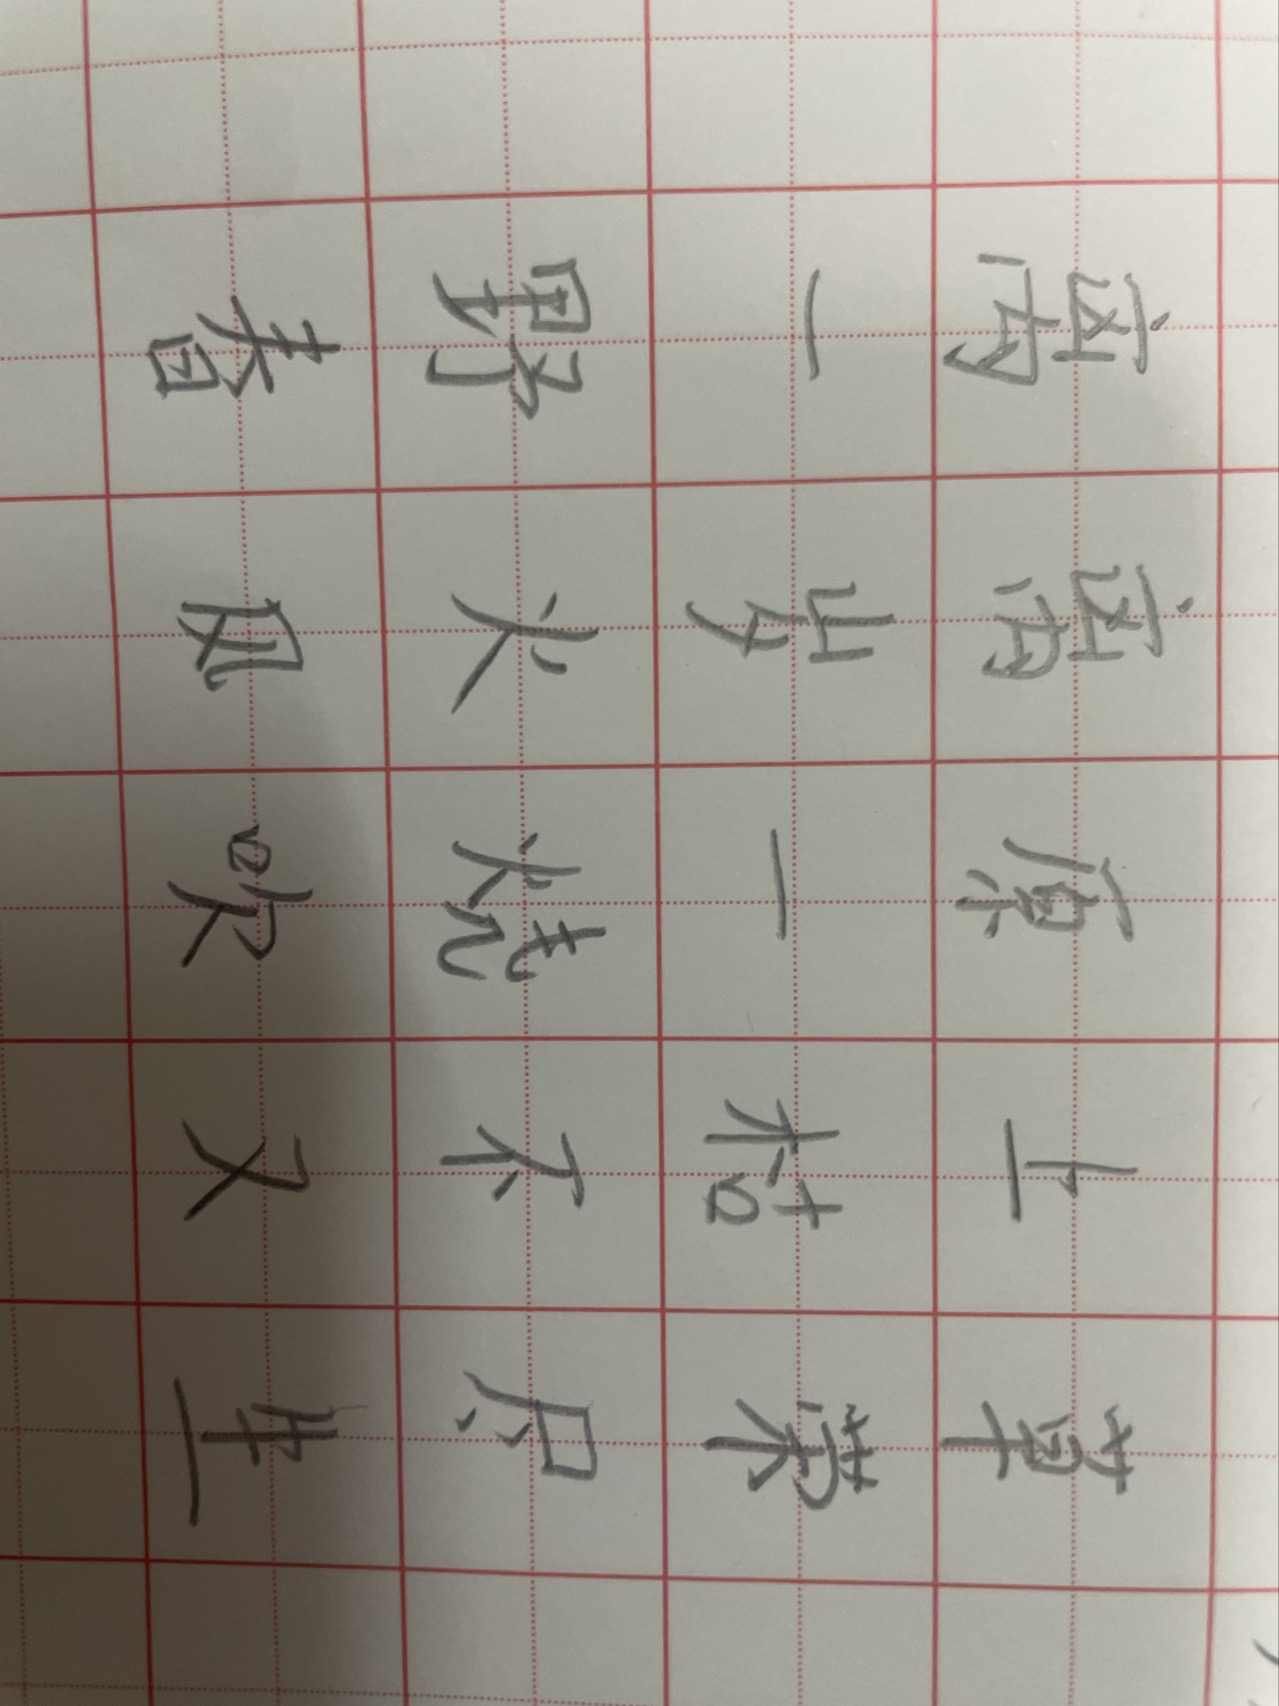 离离原上草
一岁一枯荣
野火烧不尽
春风吹又生